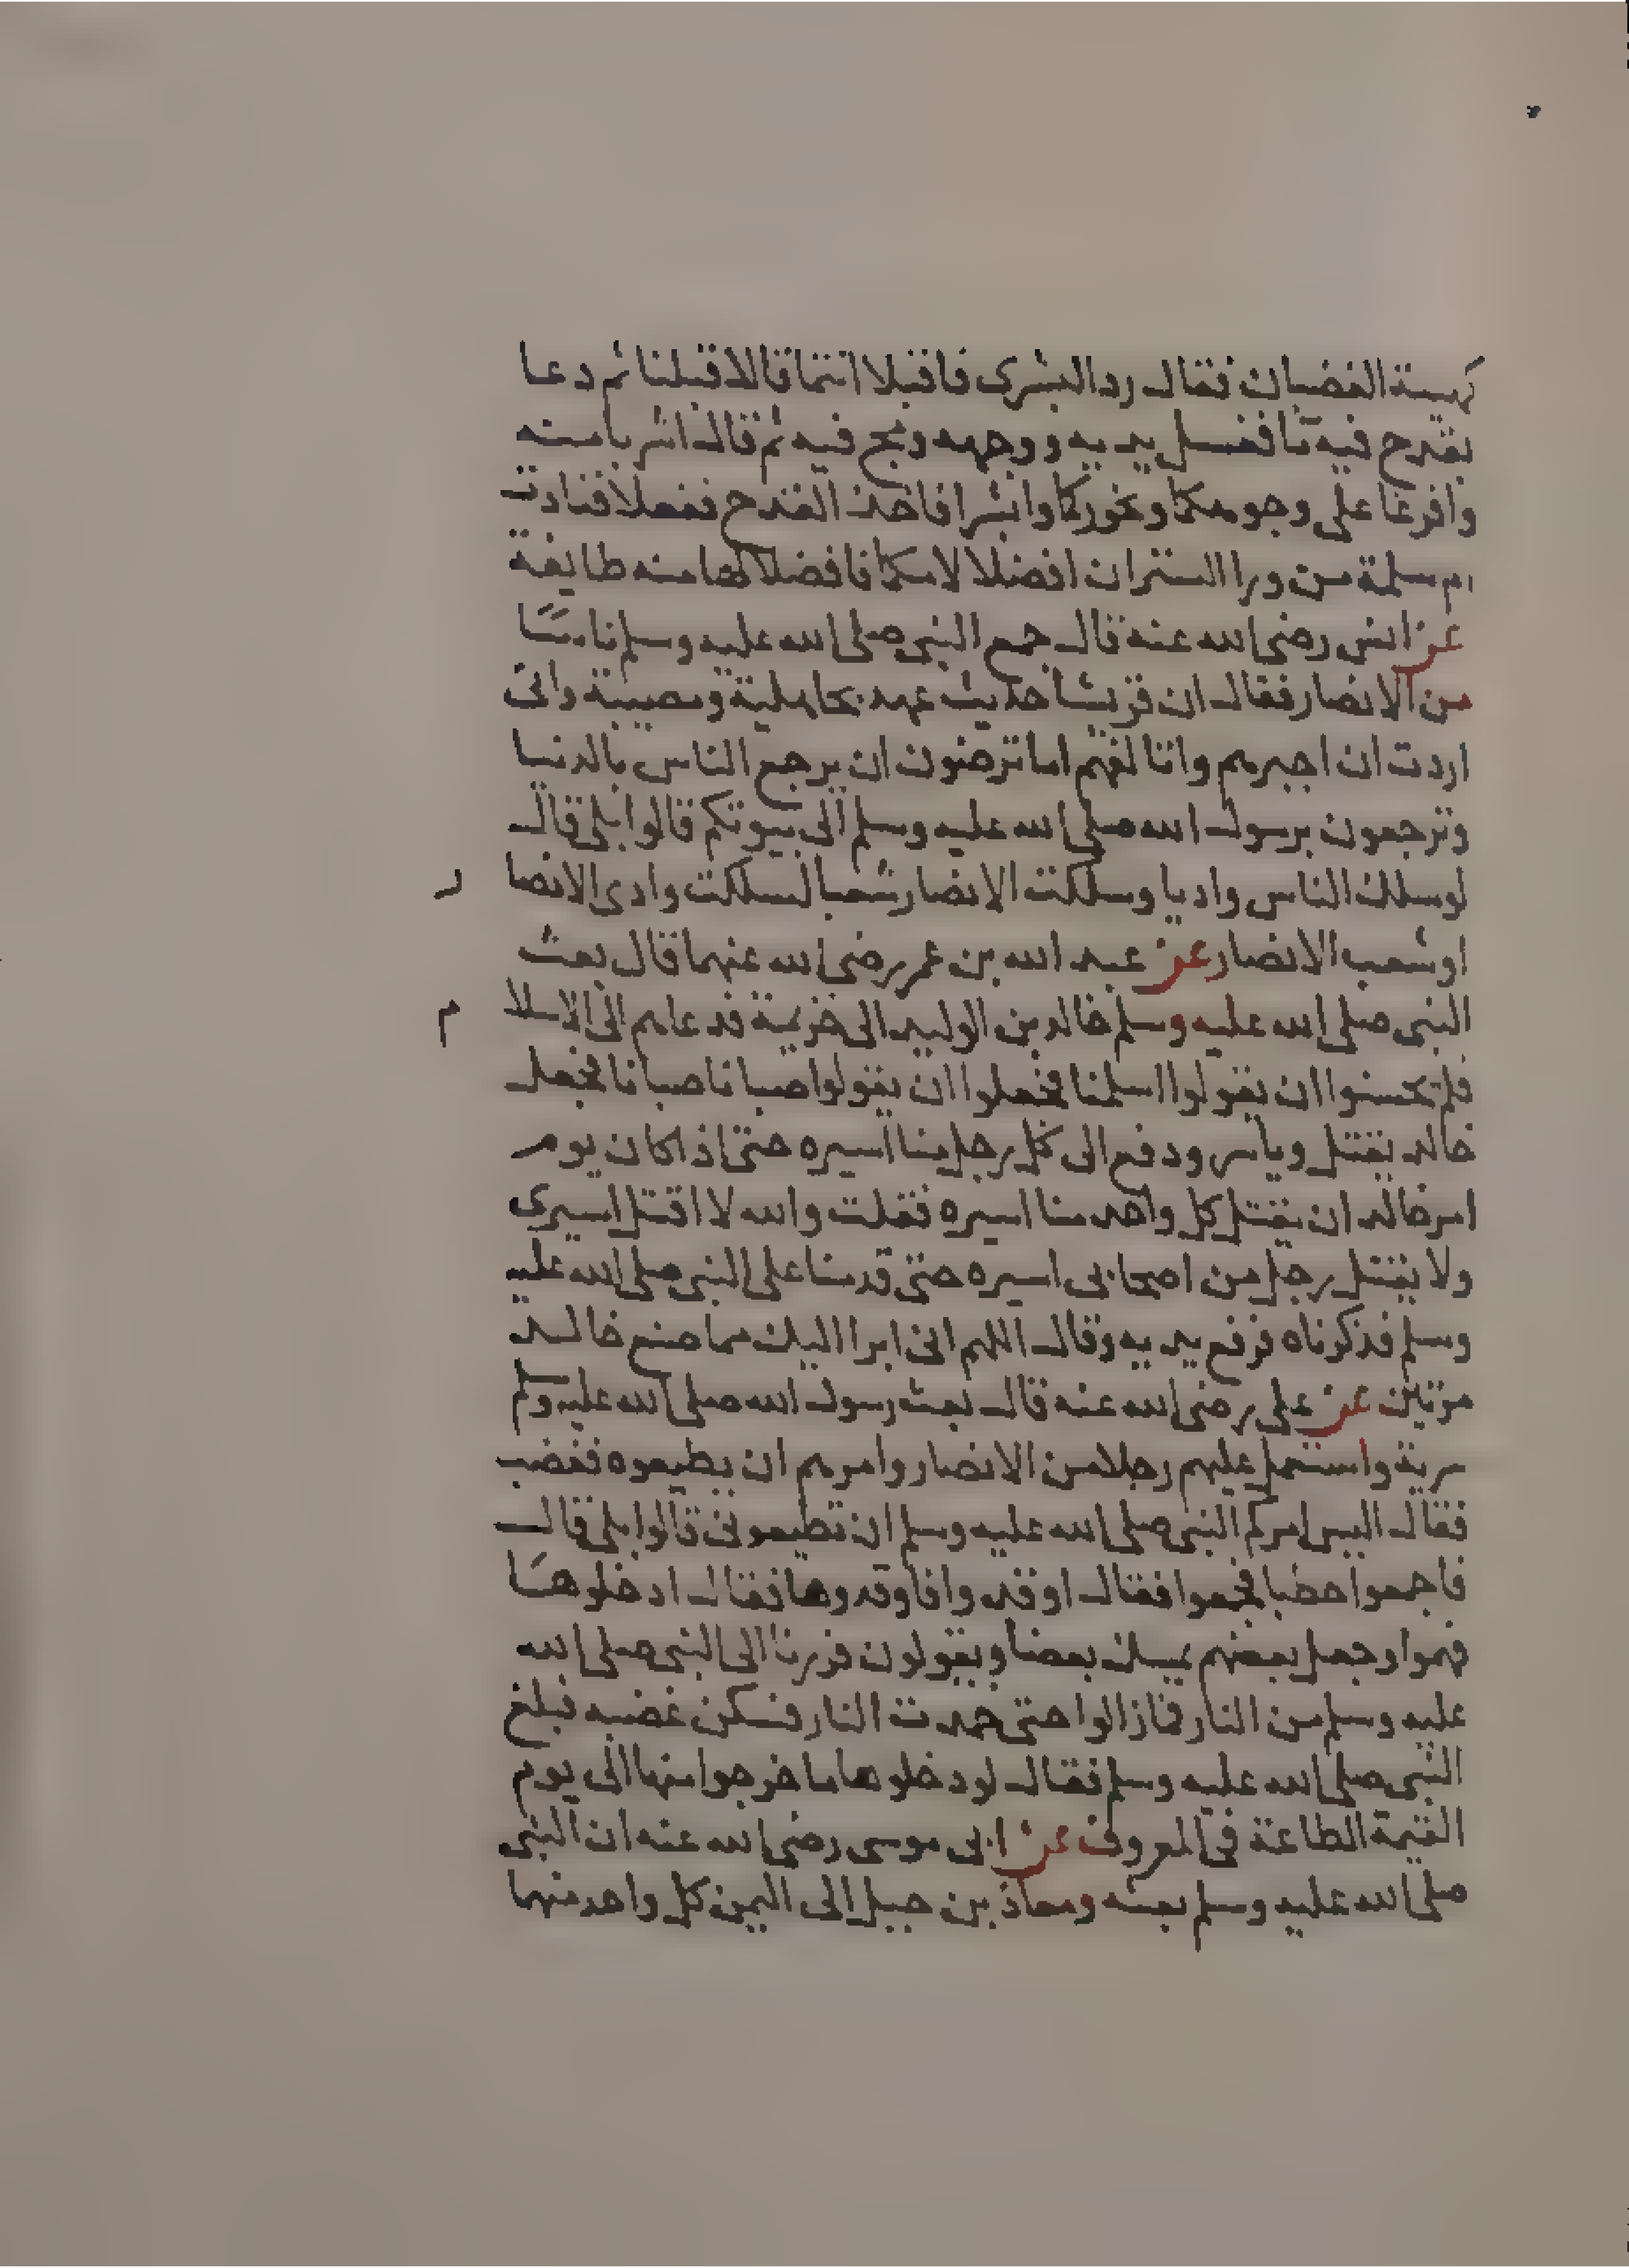 كهيئة الغضبان فقال رد البشرى فاقبلا انتما قالا قبلنا ثم دعا
بقدح فيه ما فغسل يديه ووجهه ومج فيه ثم قال اشربا منه
وافرغا على وجوهكما ونحوركما وابشرا فاخذا القدح ففعلا فنادت
ام سلمة من ورا الستر ان افضلا لامكما فافضلا لها منه طايفة
عن انس رضي الله عنه قال جمع النبي صلى الله عليه وسلم ناسا
من الانصار فقال ان قريشا حديث عهد بجاهلية ومصيبة واني
اردت ان اجبرهم واتالفهم اما ترضون ان يرجع الناس بالدنيا
وترجعون برسول الله صلى الله عليه وسلم الى بيوتكم قالوا بلى قال
لو سلك الناس واديا وسلكت الانصار شعبا لسلكت وادي الانصار
او شعب الانصار عن عبد الله بن عمر رضي الله عنهما قال بعث
النبي صلى الله عليه وسلم خالد بن الوليد الى خزيمة فدعاهم الى الاسلام
فلم يحسنوا ان يقولوا اسلمنا فجعلوا ان يقولوا صبانا صبانا فجعل
خالد يقتل وياسر ودفع الى كل رجل منا اسيره حتى اذا كان يوم
امر خالد ان يقتل كل واحد منا اسيره فقلت والله لا اقتل اسيري
ولا يقتل رجل من اصحابي اسيره حتى قدمنا على النبي صلى الله عليه
وسلم فذكرناه فرفع يديه وقال اللهم اني ابرا اليك مما صنع خالد
مرتين عن علي رضي الله عنه قال بعث رسول الله صلى الله عليه وسلم
سرية واستعمل عليهم رجلا من الانصار وامرهم ان يطيعوه فغضب
فقال اليس امركم النبي صلى الله عليه وسلم ان تطيعوني قالوا بلى قال
فاجمعوا حطبا فجمعوا فقال اوقدوا فاوقدوها فقال ادخلوها
فهموا وجعل بعضهم يمسك بعضا ويقولون فررنا الى النبي صلى الله
عليه وسلم من النار فمازالوا حتى خمدت النار فسكن غضبه فبلغ
النبي صلى الله عليه وسلم فقال لو دخلوها ما خرجوا منها الى يوم
القيمة الطاعة في المعروف عن ابي موسى رضي الله عنه ان النبي
صلى الله عليه وسلم بعثه ومعاذ بن جبل الى اليمن كل واحد منهما